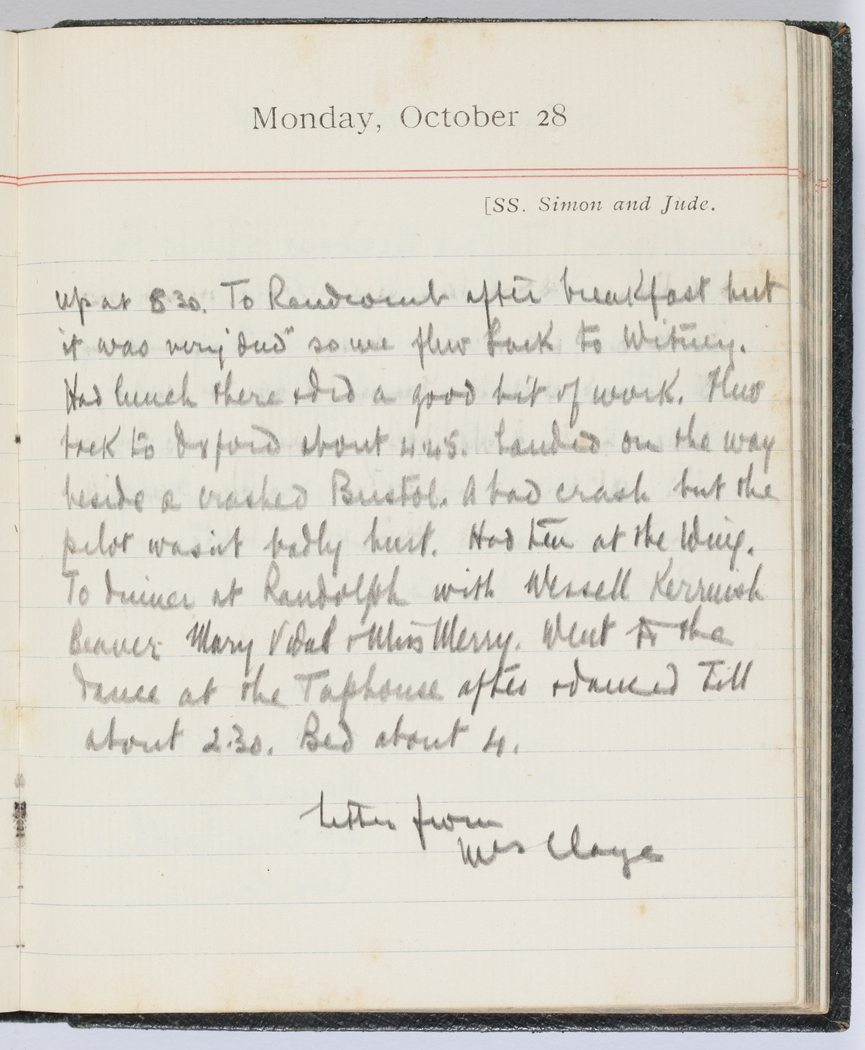 Monday, October 28
[SS. Simon and Jude.
up at 8 30. To Rendcomb after breakfast but
it was very "dud" so we flew back to Witney.
Had lunch there & did a good bit of work. Flew
back to Oxford about 4.45. Landed on the way
beside a crashed Bristol. A bad crash but the
pilot wasn't badly hurt. Had tea at the Wing.
To dinner at Randolph with Wessell Kermish
Beaver Mary Vidal & Miss Merry. Went to the
dance at the Taphouse after & danced till
about 2.30. Bed about 4.
Letter from
Mrs Claye